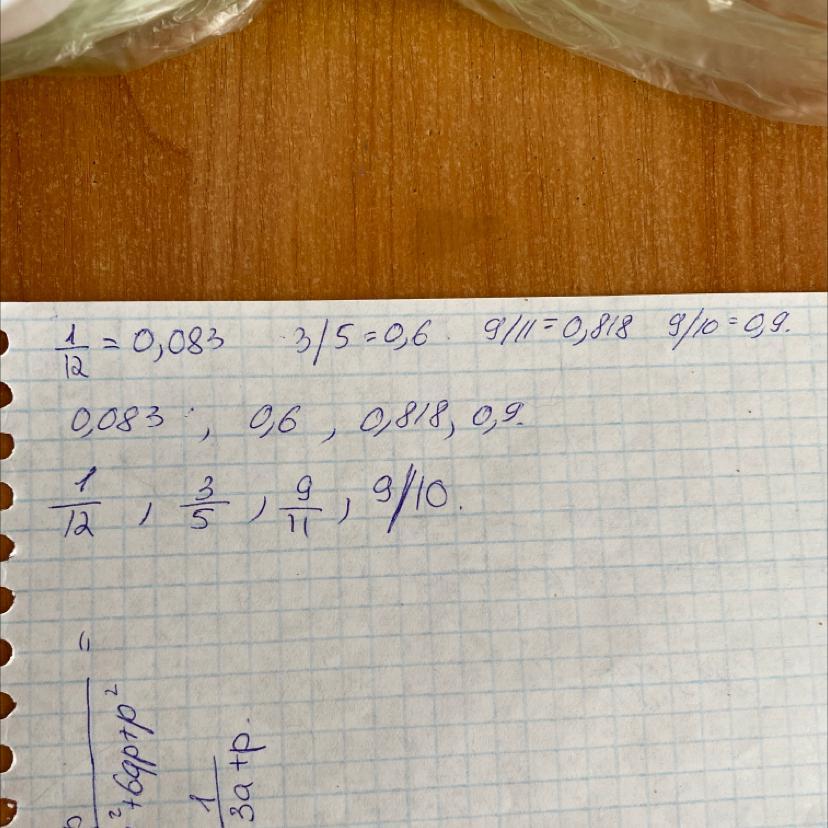 1/12 = 0,083 3/5 = 0,6. 9/11 = 0,818 9/10 = 0,9.
0,083, 0,6, 0,818, 0,9.
1/12, 3/5, 9/11, 9/10.
=
²+6ap+p²
1/3a+p.